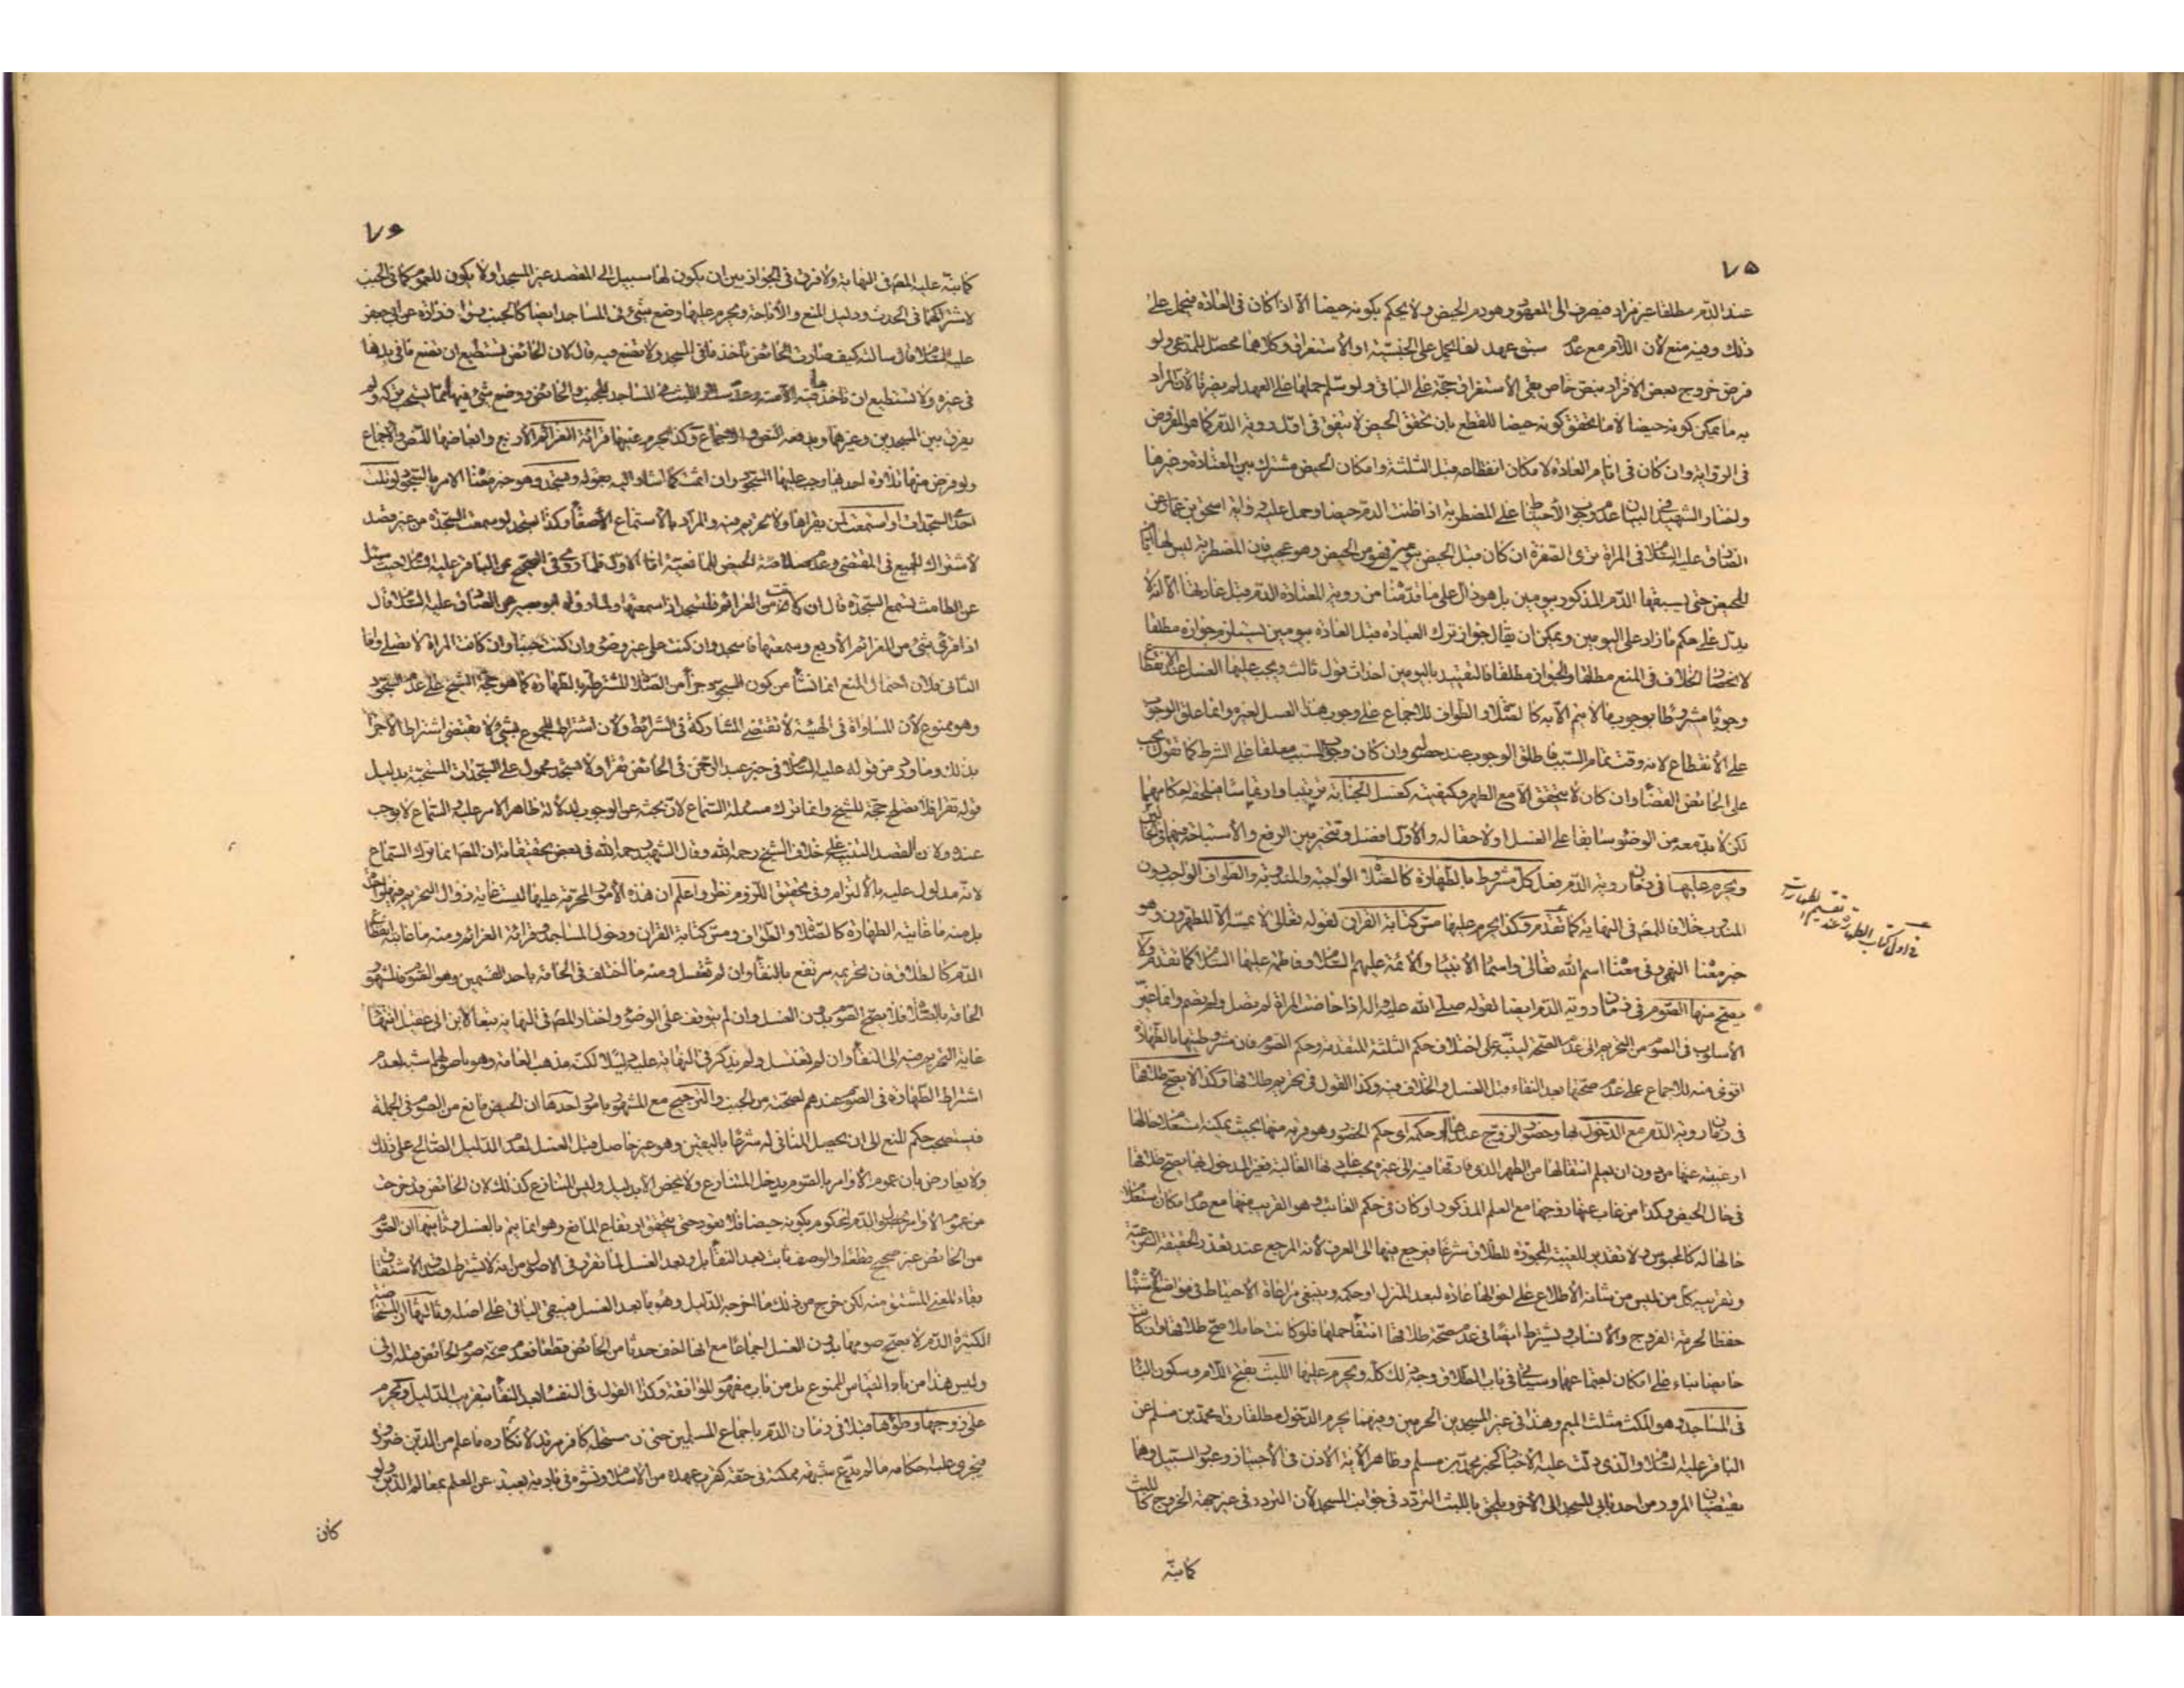 ٧٥
عند الدم مطلقا غير مراد فيصرف الى المعهود وهو دم الحيض ولا يحكم بكونه حيضا الا اذا كان فى العادة فيحمل على
ذلك وفيه منع لان اللام مع عدم سبق عهد انما يحمل على الجنسية او الاستغراق وكلاهما محصل للمدعى ولو
فرض خروج بعض الافراد بنص خاص بقى الاستغراق حجة على الباقى ولو سلم حملها على العهد لم يضرنا لان المراد
به ما يمكن كونه حيضا لا ما تحقق كونه حيضا للقطع بان تحقق الحيض لا يتفق فى اول رؤية الدم كما هو المفروض
فى الرواية وان كان فى ايام العادة لامكان انقطاعه قبل الثلثة وامكان الحيض مشترك بين المعتادة وغيرها
واختار الشهيد فى البيان عدم وجوب الاحتياط على المضطربة اذا ظنت الدم حيضا وحمل عليه رواية اسحق بن عمار عن
الصادق عليه السلام فى المراة ترى الصفرة ان كان قبل الحيض بيومين فهو من الحيض وهو عجيب فان المضطربة ليس لها ايام
للحيض حتى يسبقها الدم المذكور بيومين بل هو دال على ما قدمنا من رؤية المعتادة الدم قبل عادتها الا انه لا
يدل على حكم ما زاد على اليومين ويمكن ان يقال جواز ترك العبادة قبل العادة بيومين يستلزم جوازه مطلقا
لانحصار الخلاف فى المنع مطلقا والجواز مطلقا فالتقييد باليومين احداث قول ثالث ويجب عليها الغسل عند الانقطاع
وجوبا مشروطا بوجوب ما لا يتم الا به كالصلاة والطواف للاجماع على وجوب هذا الغسل لغيره وانما علق الوجوب
على الانقطاع لانه وقت تمام السبب فاطلق الوجوب عند حصوله وان كان وجوب السبب معلقا على الشرط كما تقول يجب
على الحائض القضاء وان كان لا يتحقق الا مع الطهر وكيفيته كغسل الجنابة ترتيبا وارتماسا فيلحقه احكامهما
لكن لا بد معه من الوضوء سابقا على الغسل او لاحقا له والاول افضل وتتخير بين الرفع والاستباحة فيهما
ويحرم عليها فى زمان رؤية الدم فعل كل مشروط بالطهارة كالصلاة الواجبة والمندوبة والطواف الواجب دون
المندوب خلافا للمص فى النهاية كما تقدم وكذا يحرم عليها مس كتابة القران لقوله تعالى لا يمسه الا المطهرون وهو
خبر معناه النهى وفى معناه اسم الله تعالى واسماء الانبياء والائمة عليهم السلام وفاطمة عليها السلام كما تقدم ولا
يصح منها الصوم فى زمان رؤية الدم ايضا لقوله صلى الله عليه واله اذا حاضت المراة لم تصل ولم تصم وانما غير
الاسلوب فى الصوم من التحريم الى عدم الصحة لينبه على اختلاف حكم الثلثة المتقدمة وحكم الصوم فان مشروطيتها بالطهارة
اقوى منه للاجماع على عدم صحتها بعد النقاء قبل الغسل والخلاف فيه وكذا القول فى تحريم طلاقها وكذا لا يصح طلاقها
فى زمان رؤية الدم مع الدخول بها وحضور الزوج عندها او حكمه اى حكم الحضور وهو قربه منها بحيث يمكنه استعلام حالها
او غيبته عنها من دون ان يعلم انتقالها من الطهر الذى فارقها فيه الى غيره بحسب عادتها الغالبة فغير المدخول بها يصح طلاقها
فى حال الحيض وكذا من غاب عنها زوجها مع العلم المذكور او كان فى حكم الغائب وهو القريب منها مع عدم امكان استعلام
حالها له كالمحبوس ولا تقدير للغيبة المجوزة للطلاق شرعا فيرجع فيها الى العرف لانه المرجع عند تعذر الحقيقة الشرعية
وتقريبه كل من ليس من شانه الاطلاع على احوالها عادة لبعد المنزل او حكمه وينبغى مراعاة الاحتياط فى مواضع الاشتباه
حفظا لحرمة الفروج والانساب ويشترط ايضا فى عدم صحة طلاقها انتفاء حملها فلو كانت حاملا صح طلاقها وان كانت
حائضا بناء على امكان اجتماعهما وسيأتى فى باب الطلاق وجه ذلك كله ويحرم عليها اللبث بفتح اللام وسكون الباء
فى المساجد وهو المكث مثلث الميم وهذا فى غير المسجدين الحرمين وفيهما يحرم الدخول مطلقا رواه محمد بن مسلم عن
الباقر عليه السلام والذى دلت عليه الاخبار كخبر محمد بن مسلم وظاهر الاية الاذن فى الاجتياز وعبور السبيل وهما
يقتضيان المرور من احد بابى المسجد الى الاخر ويلحق باللبث التردد فى جوانب المسجد لان التردد فى غير جهة الخروج كاللبث
كما نبه
فى اول كتاب الطهارة عند تقسيم الطهارات
٧٦
كما نبه عليه المص فى النهاية ولا فرق فى الجواز بين ان يكون لها سبيل الى المقصد غير المسجد او لا يكون للعموم كما فى الجنب
لاشتراكهما فى الحدث ودليل المنع والاباحة ويحرم عليها وضع شئ فى المساجد ايضا كالجنب روى زرارة عن ابى جعفر
عليه السلام قال سالته كيف صارت الحائض تاخذ ما فى المسجد ولا تضع فيه قال لان الحائض تستطيع ان تضع ما فى يدها
فى غيره ولا تستطيع ان تاخذ ما فيه الا منه وعد سلار اللبث فى المساجد للجنب والحائض ووضع شئ فيها مما يستحب تركه ولم
يفرق بين المسجدين وغيرهما ويدفعه النص والاجماع وكذا يحرم عليها قرائة العزائم الاربع وابعاضها للنص والاجماع
ولو فرض منها تلاوة احدها وجب عليها السجود وان اثمت كما اشار اليه بقوله وتسجد وهو خبر معناه الامر بالسجود لو تلت
احدى السجدات او استمعت لمن يقراها ولا تحريم فيه والمراد بالاستماع الاصغاء وكذا تسجد لو سمعت السجدة من غير قصد
لاشتراك الجميع فى المقتضى وعدم صلاحية الحيض للمانعية اما الاول فلما روى فى الصحيح عن الباقر عليه السلام حيث سئل
عن الطامث تسمع السجدة قال ان كانت من العزائم فلتسجد اذا سمعتها ولما رواه ابو بصير عن الصادق عليه السلام قال
اذا قرئ شئ من العزائم الاربع وسمعتها فاسجد وان كنت على غير وضوء وان كنت جنبا وان كانت المراة لا تصلى واما
الثانى فلان احتمال المنع انما نشأ من كون السجود جزأ من الصلاة المشترطة بالطهارة كما هو حجة الشيخ على عدم السجود
وهو ممنوع لان المساواة فى الهيئة لا تقتضى المشاركة فى الشرائط ولان اشتراط المجموع بشئ لا يقتضى اشتراط الاجزاء
بذلك وما ورد من قوله عليه السلام فى خبر عبد الرحمن فى الحائض تقرا ولا تسجد محمول على السجدات المستحبة بدليل
قوله تقرا فلا يصلح حجة للشيخ وانما ترك مسئلة السماع لان بحثه عن الوجوب لدلالة ظاهر الامر عليه والسماع لا يوجب
عنده ولان القصد التنبيه على خلاف الشيخ رحمه الله وقال الشهيد رحمه الله فى بعض تحقيقاته ان المص انما ترك السماع
لانه مدلول عليه بالالتزام وفى تحقق اللزوم نظر واعلم ان هذه الامور المحرمة عليها ليست غاية زوال التحريم فيها واحدة
بل منه ما غايته الطهارة كالصلاة والطواف ومس كتابة القران ودخول المساجد وقرائة العزائم ومنه ما غايته انقطاع
الدم كالطلاق فان تحريمه يرتفع بالنقاء وان لم تغتسل ومنه ما اختلف فى الحاقه باحد القسمين وهو الصوم فالمشهور
الحاقه بالصلاة فلا يصح الصوم بدون الغسل وان لم يتوقف على الوضوء واختار المص فى النهاية تبعا لابن ابى عقيل انتهاء
غاية التحريم فيه الى النقاء وان لم تغتسل ولم يذكر فى النهاية عليه دليلا لكنه مذهب العامة وهو باصولهم اشبه لعدم
اشتراط الطهارة فى الصوم عندهم لصحته من الجنب والترجيح مع المشهور بامور احدها ان الحيض مانع من الصوم فى الجملة
فيستصحب حكم المنع الى ان يحصل المنافى له شرعا باليقين وهو غير حاصل قبل الغسل لعدم الدليل الصالح على ذلك
ولا يعارض بان عموم الاوامر بالصوم يدخل المتنازع ولا يخص الا بدليل وليس المتنازع كذلك لان الحائض قد خرجت
من عموم الاوامر بحصول الدم المحكوم بكونه حيضا فلا تعود حتى يتحقق ارتفاع المانع وهو انما يتم بالغسل وثانيها ان الصوم
من الحائض غير صحيح قطعا والوصف ثابت بعد النقاء بل وبعد الغسل لما تقرر فى الاصول من انه لا يشترط لصدق الاشتقاق
بقاء المعنى المشتق منه لكن خرج من ذلك ما اخرجه الدليل وهو ما بعد الغسل فيبقى الباقى على اصله وثالثها ان المستحاضة
الكثيرة الدم لا يصح صومها بدون الغسل اجماعا مع انها اخف حدثا من الحائض قطعا فعدم صحة صوم الحائض قبله اولى
وليس هذا من باب القياس الممنوع بل من باب مفهوم الموافقة وكذا القول فى النفساء بعد النقاء بتقريب الدليل ويحرم
على زوجها وطؤها قبلا فى زمان الدم باجماع المسلمين حتى ان مستحله كافر مرتد لانكاره ما علم من الدين ضرورة
فيجرى عليه احكامه ما لم يدع شبهة ممكنة فى حقه كقرب عهده من الاسلام ونشوه فى بادية بعيدة عن العلم بمعالم الدين ولو
كان